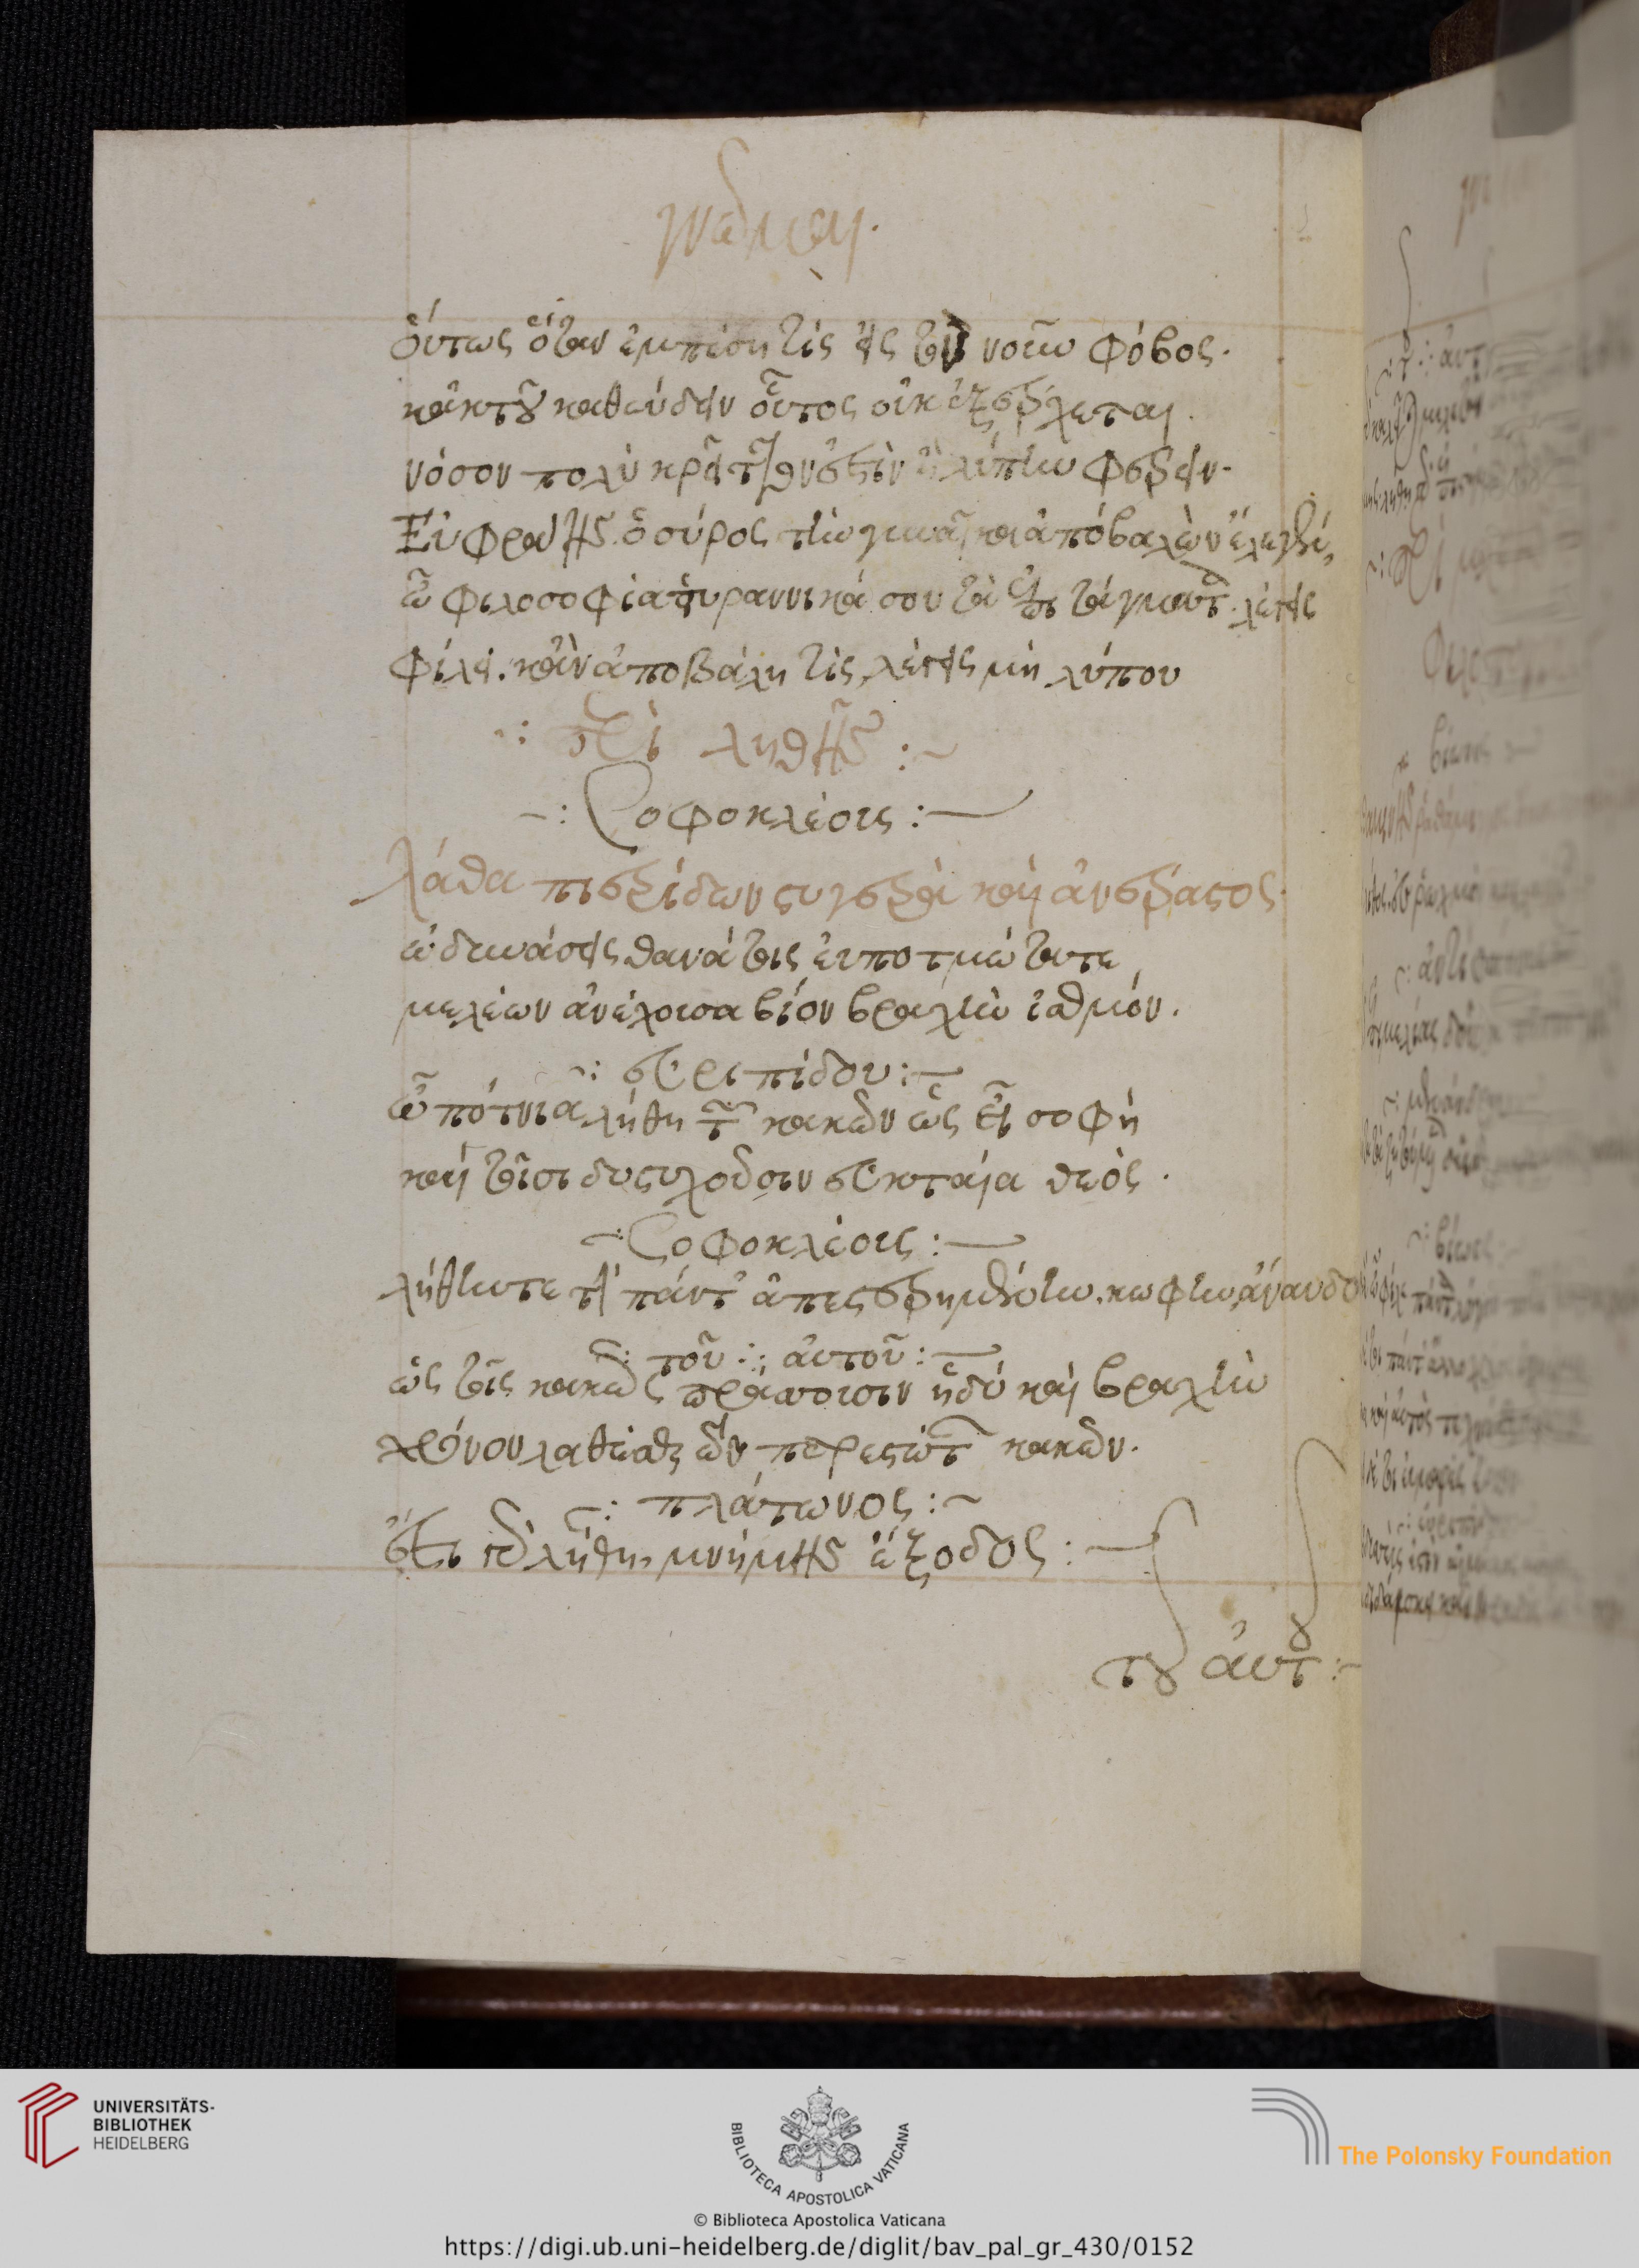 γνῶμαι.
οὕτως ὅταν ἐμπέση τὶς εἰς τὸν νοῦν φόβος.
κἀκ τοῦ καθεύδειν οὗτος οὐκ ἐξέρχεται.
νόσον πολὺ κρεῖττόν ἐστιν ἢ λύπην φέρειν.
Εὐφράτης ὁ σύρος τὴν γυναῖκα ἀποβαλὼν ἔλεγεν,
ὦ φιλοσοφία τυραννικά σου τὰ ἐπιτάγματα. λέγεις
φίλει. κἂν ἀποβάλη τὶς, λέγεις μὴ λύπου
περὶ λήθης :~
Σοφοκλέους :—
λάθα πιερίδων στυγερὰ καὶ ἀνέρατος.
ὦ δυνάσεις θανάτοις εὐποτμώτατε
μελέων ἀνέχουσα βίον βραχὺν ἰσθμόν.
εὐριπίδου :—
ὦ πότνια λήθη τῶν κακῶν ὡς εἶ σοφὴ
καὶ τοῖσι δυστυχοῦσιν εὐκταία θεὸς.
Σοφοκλέους :—
λήθην τε τὴν πάντ' ἀπεστερημένην. κωφὴν ἄναυδον
τοῦ αὐτοῦ :—
ὡς τοῖς κακῶς πράσσουσιν ἡδὺ καὶ βραχὺν
χρόνον λαθέσθαι τῶν παρεστώτων κακῶν.
πλάτωνος :~
ἔστι δὲ λήθη, μνήμης ἔξοδος :—
τοῦ αὐτοῦ :~
UNIVERSITÄTS-
BIBLIOTHEK
HEIDELBERG
BIBLIOTECA APOSTOLICA VATICANA
The Polonsky Foundation
© Biblioteca Apostolica Vaticana
https://digi.ub.uni-heidelberg.de/diglit/bav_pal_gr_430/0152